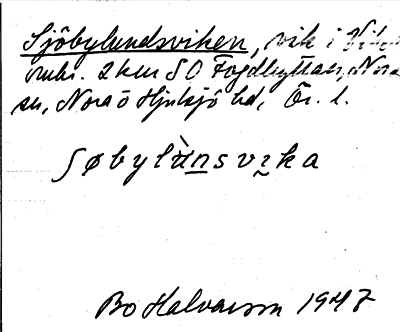 Sjöbylundsviken, vik i Viker
omkr. 2 km SO Fogdhyttan, Nora
sn, Nora o Hjulsjö hd, Ör. l.
ʃøbylu̇̀nsvı̰ka
Bo Halvarson 1947